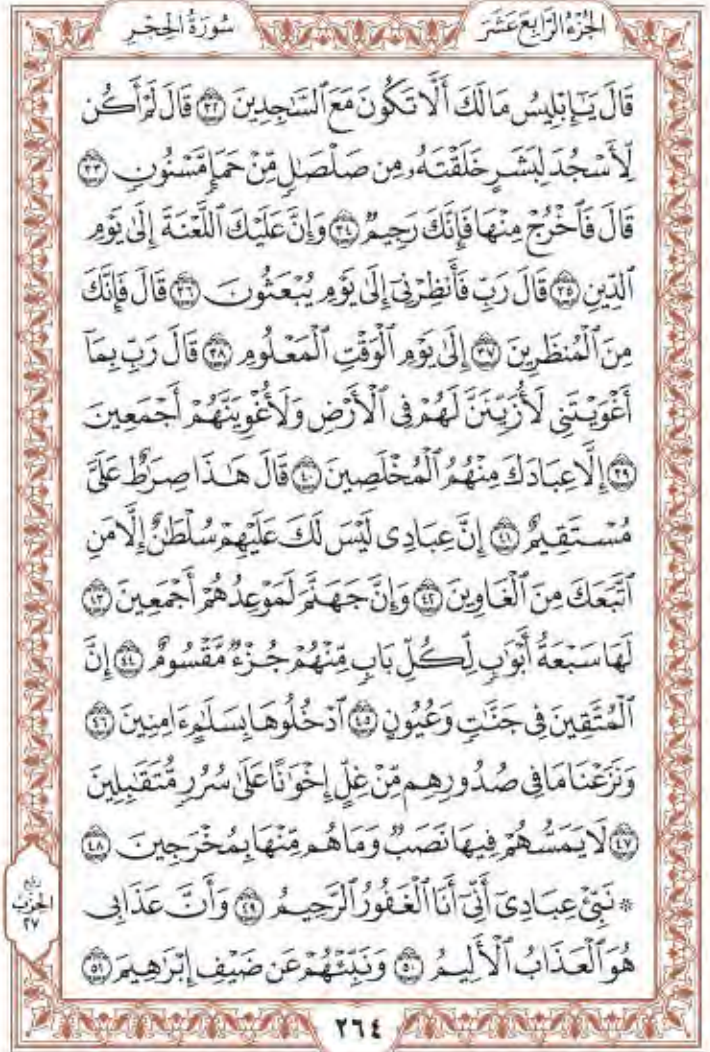 سُورَةُ الحِجْرِ
الجُزْءُ الرَّابِعَ عَشَرَ
قَالَ يَٰٓإِبْلِيسُ مَا لَكَ أَلَّا تَكُونَ مَعَ ٱلسَّٰجِدِينَ ٣٢ قَالَ لَمْ أَكُن
لِّأَسْجُدَ لِبَشَرٍ خَلَقْتَهُۥ مِن صَلْصَٰلٍ مِّنْ حَمَإٍ مَّسْنُونٍ ٣٣
قَالَ فَٱخْرُجْ مِنْهَا فَإِنَّكَ رَجِيمٌ ٣٤ وَإِنَّ عَلَيْكَ ٱللَّعْنَةَ إِلَىٰ يَوْمِ
ٱلدِّينِ ٣٥ قَالَ رَبِّ فَأَنظِرْنِىٓ إِلَىٰ يَوْمِ يُبْعَثُونَ ٣٦ قَالَ فَإِنَّكَ
مِنَ ٱلْمُنظَرِينَ ٣٧ إِلَىٰ يَوْمِ ٱلْوَقْتِ ٱلْمَعْلُومِ ٣٨ قَالَ رَبِّ بِمَآ
أَغْوَيْتَنِى لَأُزَيِّنَنَّ لَهُمْ فِى ٱلْأَرْضِ وَلَأُغْوِيَنَّهُمْ أَجْمَعِينَ
٣٩ إِلَّا عِبَادَكَ مِنْهُمُ ٱلْمُخْلَصِينَ ٤٠ قَالَ هَٰذَا صِرَٰطٌ عَلَىَّ
مُسْتَقِيمٌ ٤١ إِنَّ عِبَادِى لَيْسَ لَكَ عَلَيْهِمْ سُلْطَٰنٌ إِلَّا مَنِ
ٱتَّبَعَكَ مِنَ ٱلْغَاوِينَ ٤٢ وَإِنَّ جَهَنَّمَ لَمَوْعِدُهُمْ أَجْمَعِينَ ٤٣
لَهَا سَبْعَةُ أَبْوَٰبٍ لِّكُلِّ بَابٍ مِّنْهُمْ جُزْءٌ مَّقْسُومٌ ٤٤ إِنَّ
ٱلْمُتَّقِينَ فِى جَنَّٰتٍ وَعُيُونٍ ٤٥ ٱدْخُلُوهَا بِسَلَٰمٍ ءَامِنِينَ ٤٦
وَنَزَعْنَا مَا فِى صُدُورِهِم مِّنْ غِلٍّ إِخْوَٰنًا عَلَىٰ سُرُرٍ مُّتَقَٰبِلِينَ
٤٧ لَا يَمَسُّهُمْ فِيهَا نَصَبٌ وَمَا هُم مِّنْهَا بِمُخْرَجِينَ ٤٨
۞ نَبِّئْ عِبَادِىٓ أَنِّىٓ أَنَا ٱلْغَفُورُ ٱلرَّحِيمُ ٤٩ وَأَنَّ عَذَابِى
هُوَ ٱلْعَذَابُ ٱلْأَلِيمُ ٥٠ وَنَبِّئْهُمْ عَن ضَيْفِ إِبْرَٰهِيمَ ٥١
ربع
الحزب
٢٧
٢٦٤